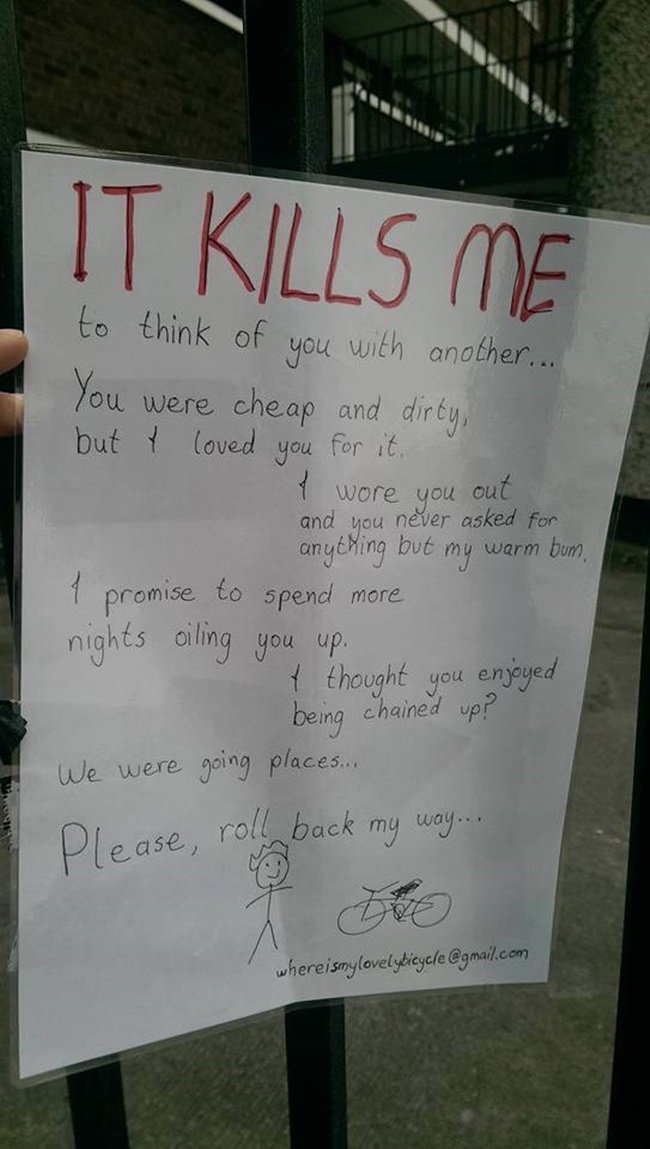 IT KILLS ME
to think of you with another...
You were cheap and dirty,
but I loved you for it.
I wore you out
and you never asked for
anything but my warm bum.
I promise to spend more
nights oiling you up.
I thought you enjoyed
being chained up?
We were going places...
Please, roll back my way...
whereismylovelybicycle@gmail.com